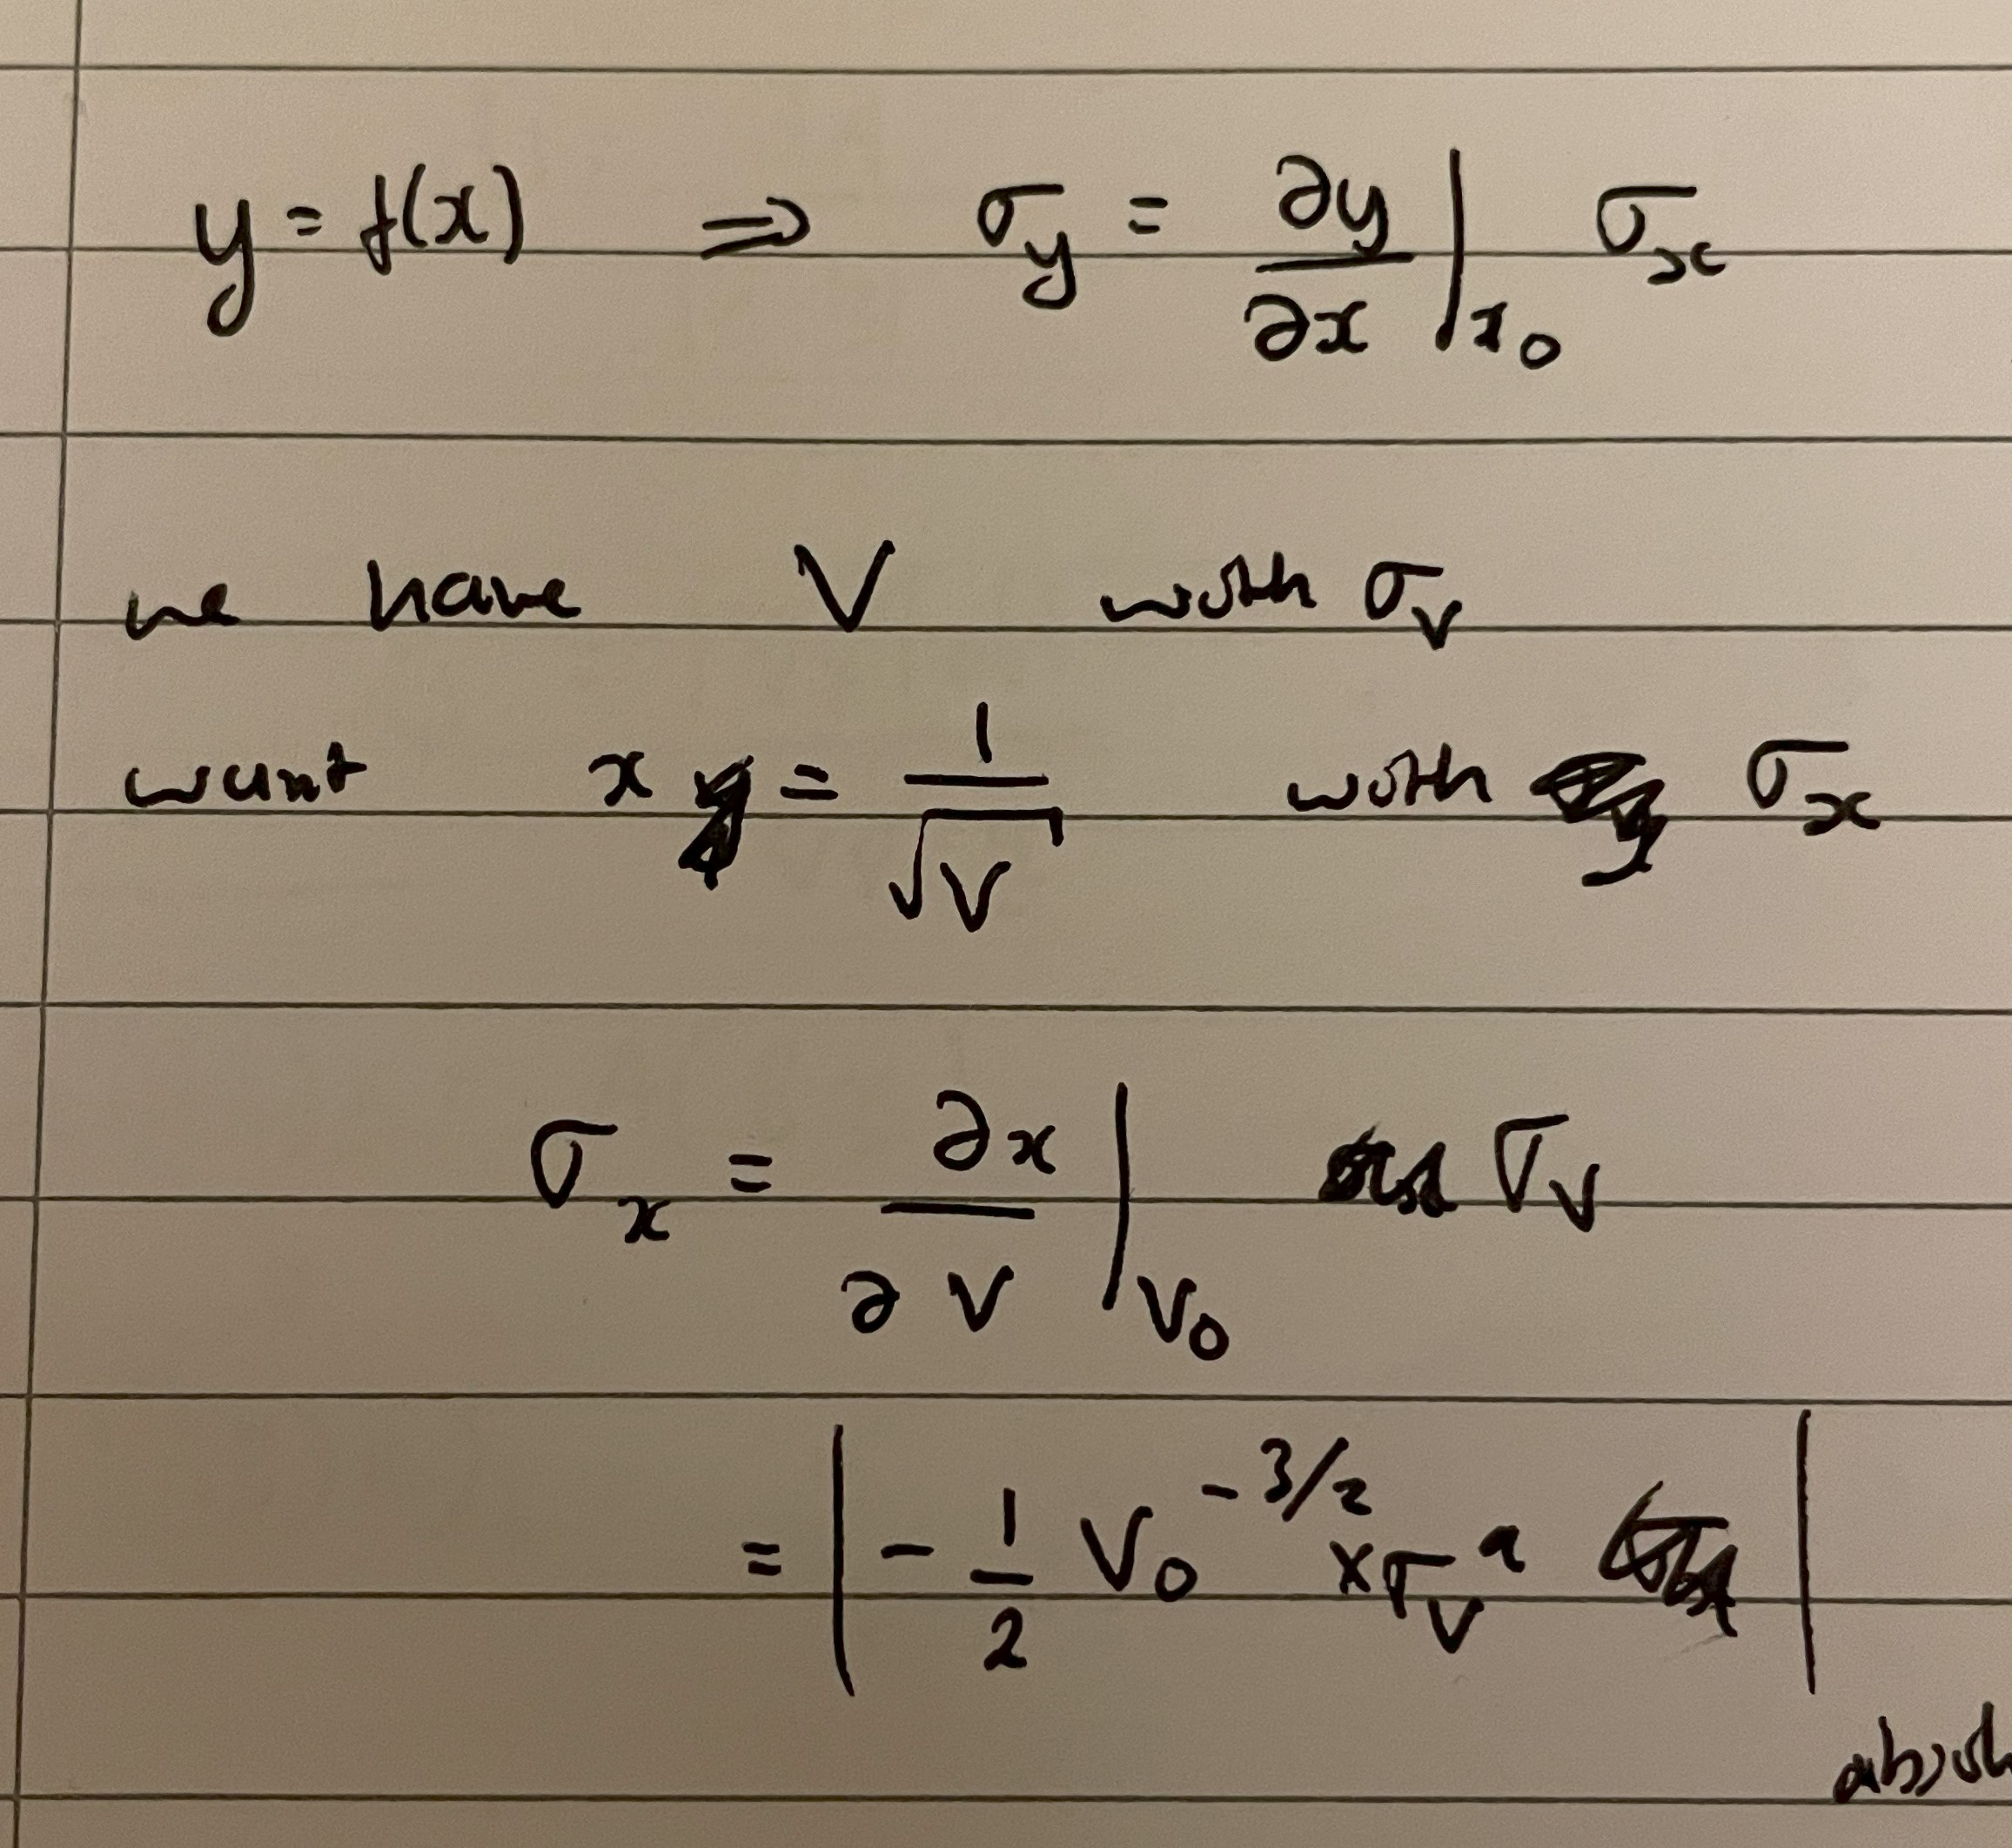 y = f(x) ⇒ σ_y = ∂y/∂x |_{x_0} σ_x
we have V with σ_V
want x = 1/√V with σ_x
σ_x = ∂x/∂V |_{V_0} σ_V
= | -1/2 V_0^{-3/2} × σ_V |